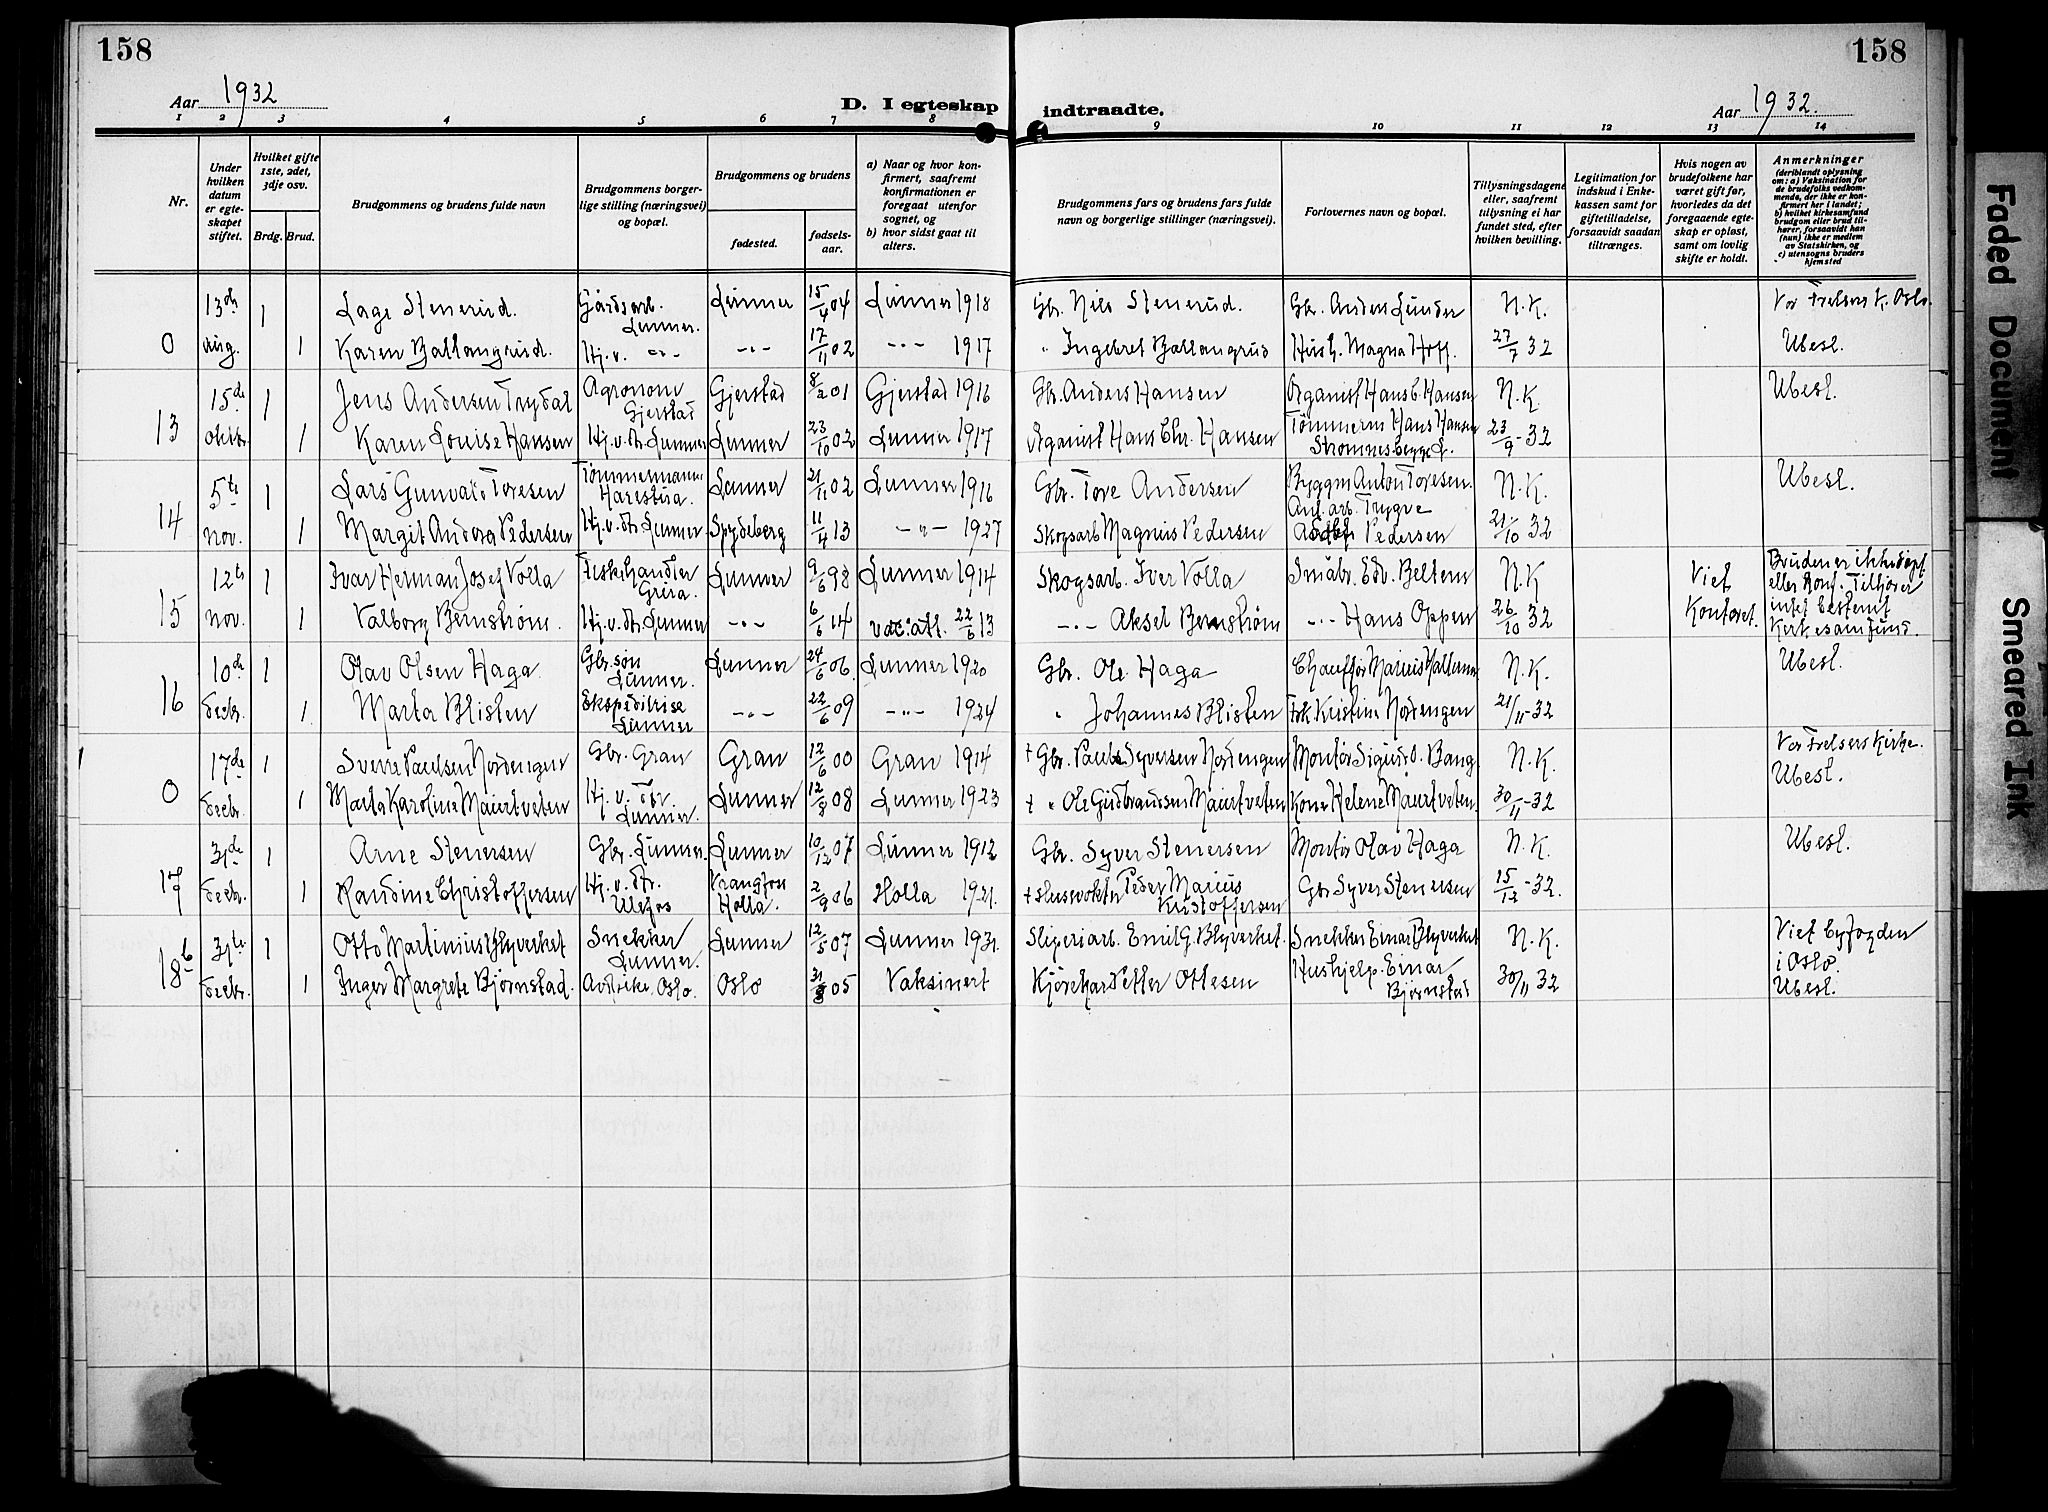 158
158
Aar 1932
D. I egteskap indtraadte.
Aar 1932.
1 2 3 4 5 6 7 8 9 10 11 12 13 14
Nr.
Under hvilken datum er egteskapet stiftet.
Hvilket gifte 1ste, 2det, 3dje osv.
Brdg. Brud.
Brudgommens og brudens fulde navn
Brudgommens borgerlige stilling (næringsvei) og bopæl.
Brudgommens og brudens
fødested.
fødselsaar.
a) Naar og hvor konfirmert, saafremt konfirmationen er foregaat utenfor sognet, og
b) hvor sidst gaat til alters.
Brudgommens fars og brudens fars fulde navn og borgerlige stillinger (næringsvei).
Forlovernes navn og bopæl.
Tillysningsdagene eller, saafremt tillysning ei har fundet sted, efter hvilken bevilling.
Legitimation for indskud i Enkekassen samt for giftetilladelse, forsaavidt saadan tiltrænges.
Hvis nogen av brudefolkene har været gift før, hvorledes da det foregaaende egteskap er opløst, samt om lovlig skifte er holdt.
Anmerkninger
(deriblandt oplysning om: a) Vaksination for de brudefolks vedkommende, der ikke er konfirmert her i landet;
b) hvilket kirkesamfund brudgom eller brud tilhører, forsaavidt han (hun) ikke er medlem av Statskirken, og
c) utensogns bruders hjemsted
13de 1 Lage Stenerud. Gårdsarb. Lunner. Lunner 15/4 04 Lunner 1918 Gbr. Nils Stenerud. Gbr. Anders Lunder N.K. Vor Frelsers K. Oslo.
0 aug. 1 Karen Ballangrud. Hj.v. -"- -"- 17/11 02 -"- 1917 " Ingebret Ballangrud Hush. Magna Hoff. 27/7 32 Ubesl.
15de 1 Jens Andersen Trydal Agronom Gjerstad Gjerstad 8/2 01 Gjerstad 1916 Gbr. Anders Hansen Hans Hansen N.K. Ubesl.
13 oktbr. 1 Karen Louise Hansen Hj.v.dtr. Lunner Lunner 23/10 02 Lunner 1917 Hans Chr. Hansen Tømmerm Hans Hansen 23/9-32
14 5te nov. 1 Lars Gunvald Toresen Tømmermann Harestua. Lunner 21/11 02 Lunner 1916 Gbr. Tore Andersen Byggm Anton Toresen. N.K. Ubesl.
1 Margit Andora Pedersen Hj.v.dtr. Lunner Spydeberg 11/4 13 -"- 1927 Skogsarb Magnus Pedersen Anl.arb. Trygve Pedersen 21/10 32
15 12te nov. 1 Ivar Herman Josef Volla Fiskehandler Grua. Lunner 9/6 98 Lunner 1914 Skogsarb. Iver Volla Småbr. Edv. Beltem N.K Viet Kontoret. Bruden er ikke døpt eller Konf. Tilhører intet bestemt Kirkesamfund.
1 Valborg Bernstrøm. Hj.v.dtr. Lunner -"- 6/6 14 vac.att. 22/6 13 -"- Aksel Bernstrøm -"- Hans Oppen 26/10 32
16 10de decbr. 1 Olav Olsen Haga Gbr.søn Lunner. Lunner 24/6 06. Lunner 1920 Gbr. Ole Haga N.K. Ubesl.
1 Marta Blisten Ekspeditrise Lunner -"- 22/6 09 -"- 1924 " Johannes Blisten Frk. Kristine Nordengen 21/11-32
0 17de decbr. 1 Sverre Paulsen Nordengen Gbr. Gran Gran 12/6 00 Gran 1914 + Gbr. Paul Syversen Nordengen Montør Sigurd O. Bang N.K. Vor Frelsers Kirke. Ubesl.
1 Marta Karoline Maiertveten Hj.v. dtr. Lunner. Lunner 12/8 08 Lunner 1923 + " Ole Gudbrandsen Maiertveten Kone Helene Maiertveten. 30/11-32
17 31de decbr. 1 Arne Stenersen Gbr. Lunner. Lunner 10/12 07 Lunner 1912 Gbr. Syver Stenersen Montør Olav Haga N.K. Ubesl.
1 Randine Christoffersen Hj.v.dtr. Ulefos Vrangfoss Holla. 2/8 06 Holla 1921. + Slusevokter Peder Marius Kristoffersen Gbr Syver Stenersen 15/12-32.
18 b 31te decbr. 1 Otto Martinius Blyverket Snekker Lunner. Lunner 12/5 07 Lunner 1931. Sliperiarb. Emil G. Blyverket. Snekker Einar Blyverket N.K. Viet byfogden i Oslo. Ubesl.
1 Inger Margrete Bjørnstad. Oslo. Oslo 31/8 05 Vaksinert Kjørekar Petter Ottesen Hushjelp. Einar Bjørnstad 30/11 32
Faded Document
Smeared Ink